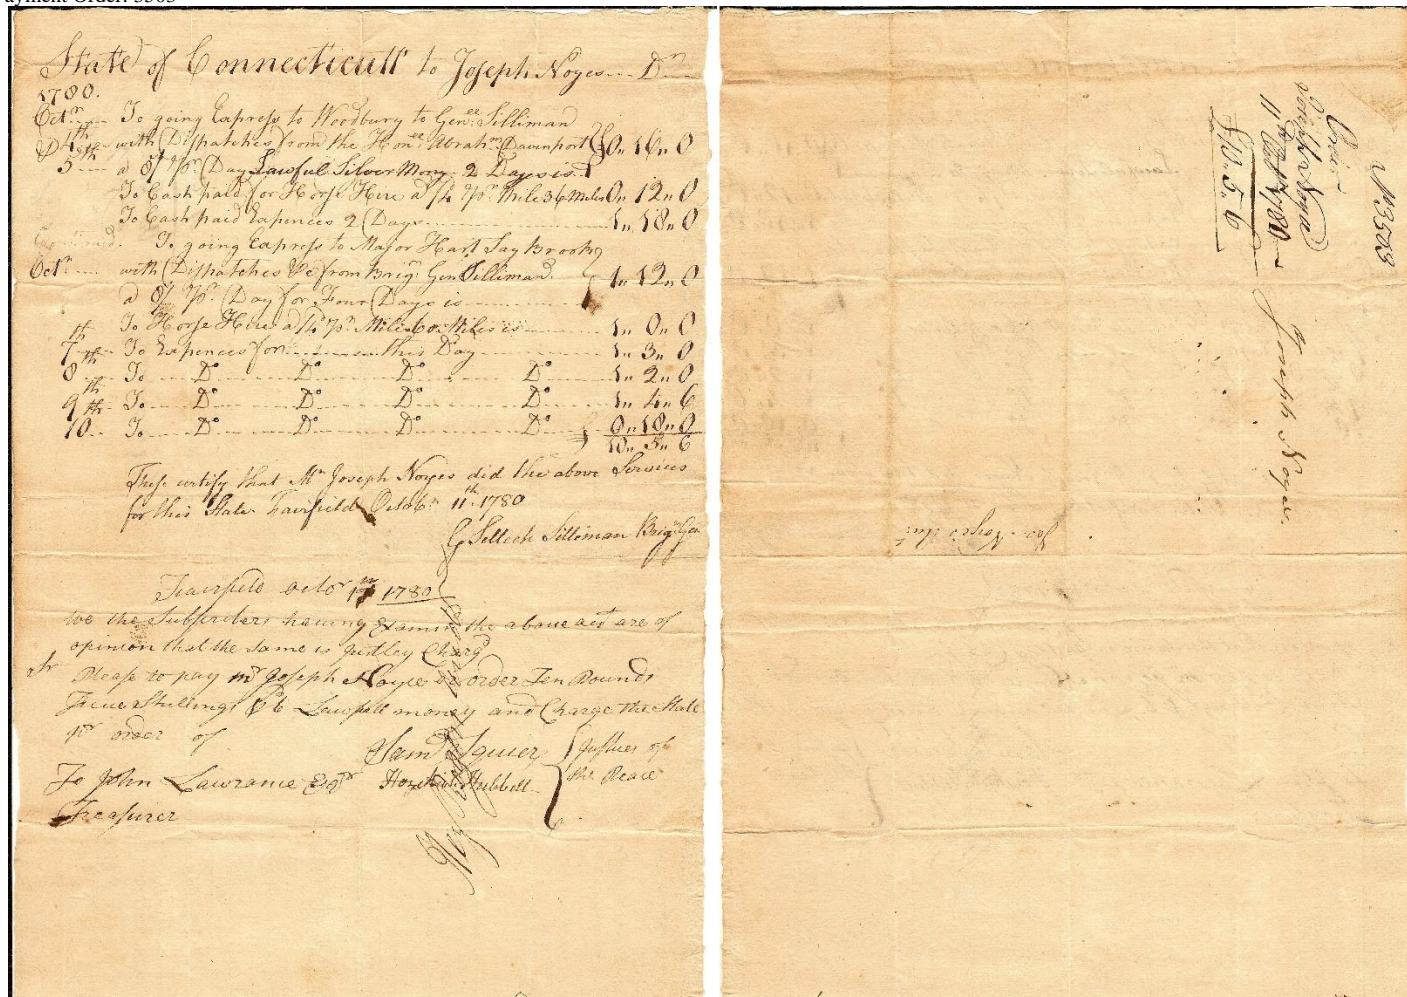 ayment Order: 3503
State of Connecticutt to Joseph Noyes Dr
1780.
Octr To going Express to Woodbury to Genell Silliman
4th with Dispatches from the Honll Abrahm Davenport 0 16 0
5th a 8/ pr Day Lawful Silver Mony 2 Days is
To Cash paid for Horse Hire a /4 pr Mile 36 Miles 0 12 0
To Cash paid Expences 2 Days 1 18 0
To going Express to Major Hart Say Brook
Octr with Dispatches &c from Brigr Gen Silliman 1 12 0
a 8/ pr Day for Four Days is
To Horse Hire a /4 pr Mile 60 Miles is 1 0 0
7th To Expences for this Day 1 3 0
8th To Do Do Do Do 1 2 0
9th To Do Do Do Do 1 4 6
10th To Do Do Do Do 0 18 0
10 5 6
These certify that Mr Joseph Noyes did the above Services
for this State Fairfield Octobr 11th 1780
G Selleck Silliman Brigr Gen
Fairfield octor 1780
we the Subscribers having Examin the above act are of
opinion that the same is Justley Chargd
Sr Please to pay mr Joseph Noyes or order Ten Pounds
Five Shillings & 6 Lawfull money and Charge the State
pr order of
Samll Squier Justices of
To John Lawrance Esqr Hezekiah Hubbell the Peace
Treasurer
No 3503
Joseph Noyes
11 Octr 1780
£10.5.6
Joseph Noyes.